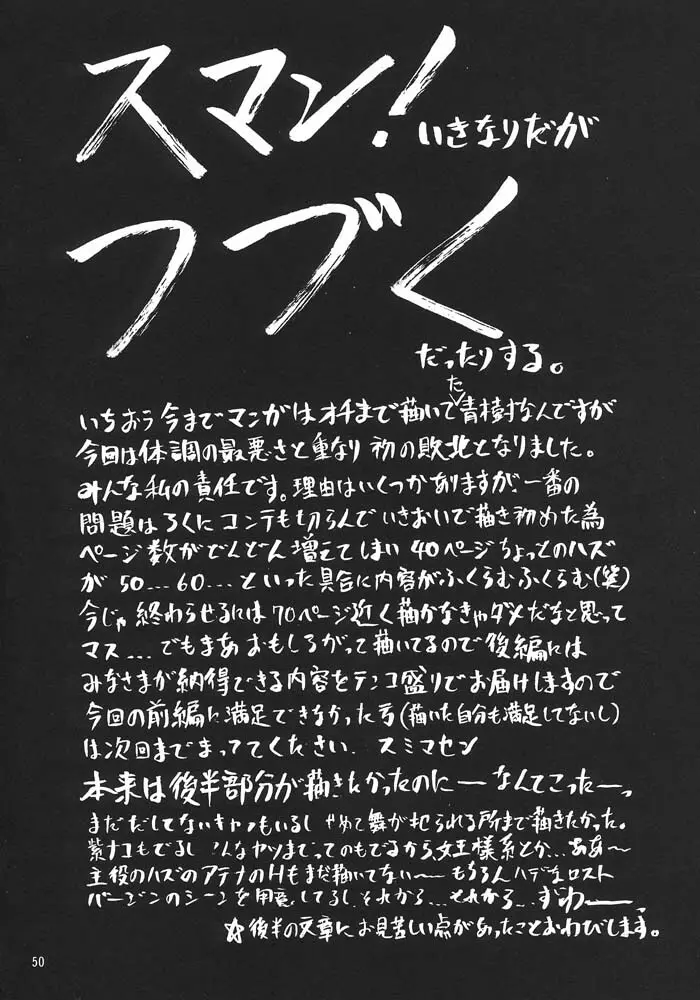 スマン!いきなりだが
つづく
だったりする。
いちおう今までマンガはオチまで描いてた青樹村なんですが
今回は体調の最悪さと重なり初の敗北となりました。
みんな私の責任です。理由はいくつかありますが一番の
問題はろくにコンテも切らんでいきおいで描き初めた為
ページ数がどんどん増えてしまい40ページちょっとのハズ
が50…60…といった具合に内容がふくらむふくらむ(笑)
今じゃ終わらせるには70ページ近く描かなきゃダメだなと思って
マス…でもまあおもしろがって描いてるので後編には
みなさまが納得できる内容をテンコ盛りでお届けしますので
今回の前編に満足できなかった方(描いた自分も満足してないし)
は次回までまっててください.スミマセン
本来は後半部分が描きたかったのにーなんてこったーっ
まだだしてないキャラもいるし せめて舞が犯られる所まで描きたかった。
紫ナコもでるし こんなヤツまでってのもでるから女王様系とか…ああ〜
主役のハズのアテナのHもまだ描いてない〜もちろんハデなロスト
バージンのシーンを用意してるしそれから…それから…ずわーーっ
☆後半の文章にお見苦しい点があったことおわびします。
50